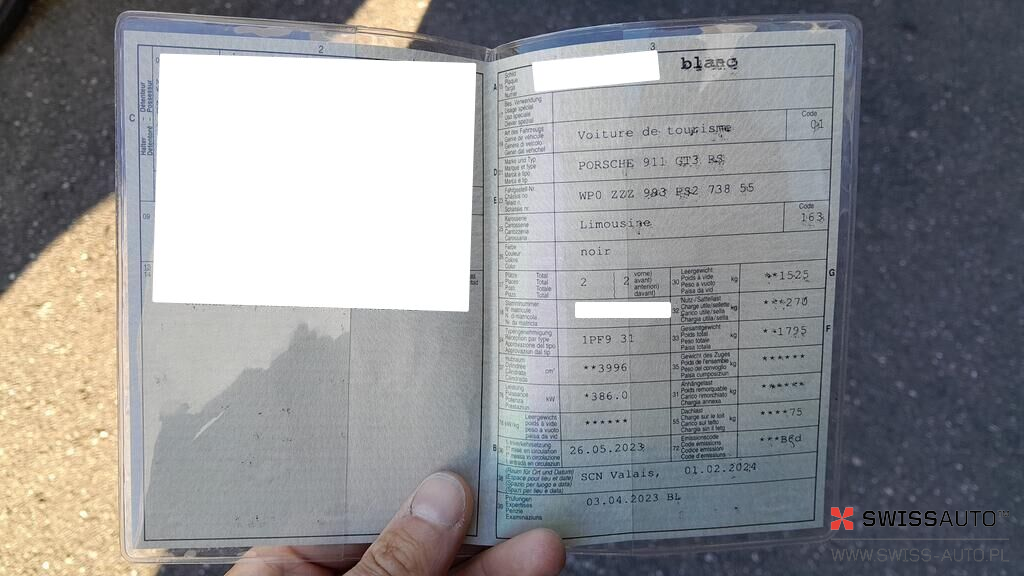 2
C
Halter - Détenteur
Detentore - Possessur
09
3
A
Schild
Plaque
Targa
Numer
blanc
Bes. Verwendung
Usage spécial
Uso speciale
Diever spezial
Art des Fahrzeugs
Genre de véhicule
Genere di veicolo
Gener dal vehichel
Voiture de tourisme
Code
01
D
Marke und Typ
Marque et type
Marca e tipo
Marca e tip
PORSCHE 911 GT3 RS
E
Fahrgestell-Nr.
Châssis no
Telaio n.
Schassis nr.
WP0 ZZZ 993 PS2 738 55
Karosserie
Carrosserie
Carrozzeria
Carossaria
Limousine
Code
163
Farbe
Couleur
Colore
Color
noir
Plätze Total
Places Total
Posti Totale
Plazs Total
2
2
vorne)
avant)
anteriori)
davant)
Leergewicht
Poids à vide
Peso a vuoto
Paisa da vid
kg
**1525
G
Stammnummer
N° matricule
N. di matricola
Nr. da matricla
32
Nutz-/Sattellast
Charge utile/sellette
Carico utile/sella
Chargia utila/sella
kg
***270
Typengenehmigung
Réception par type
Approvazione del tipo
Approvaziun dal tip
1PF9 31
33
Gesamtgewicht
Poids total
Peso totale
Paisa totala
kg
**1795
F
Hubraum
Cylindrée
Cilindrata
Cilindrada
cm³
**3996
35
Gewicht des Zuges
Poids de l'ensemble
Peso del convoglio
Paisa cumposiziun
kg
******
Leistung
Puissance
Potenza
Prestaziun
kW
*386.0
31
Anhängelast
Poids remorquable
Carico rimorchiato
Chargia annexa
kg
******
kW/kg
Leergewicht
poids à vide
peso a vuoto
paisa da vid
******
55
Dachlast
Charge sur le toit
Carico sul tetto
Chargia sin il tetg
kg
****75
B
1. Inverkehrsetzung
1re mise en circulation
1a messa in circolazione
1. entrada en circulaziun
26.05.2023
72
Emissionscode
Code émissions
Codice emissioni
Code d'emissiuns
***B6d
(Raum für Ort und Datum)
(Espace pour lieu et date)
(Spazio per luogo e data)
(Spazi per lieu e data)
SCN Valais, 01.02.2024
Prüfungen
Expertises
Perizie
Examinaziuns
03.04.2023 BL
SWISSAUTO
WWW.SWISS-AUTO.PL